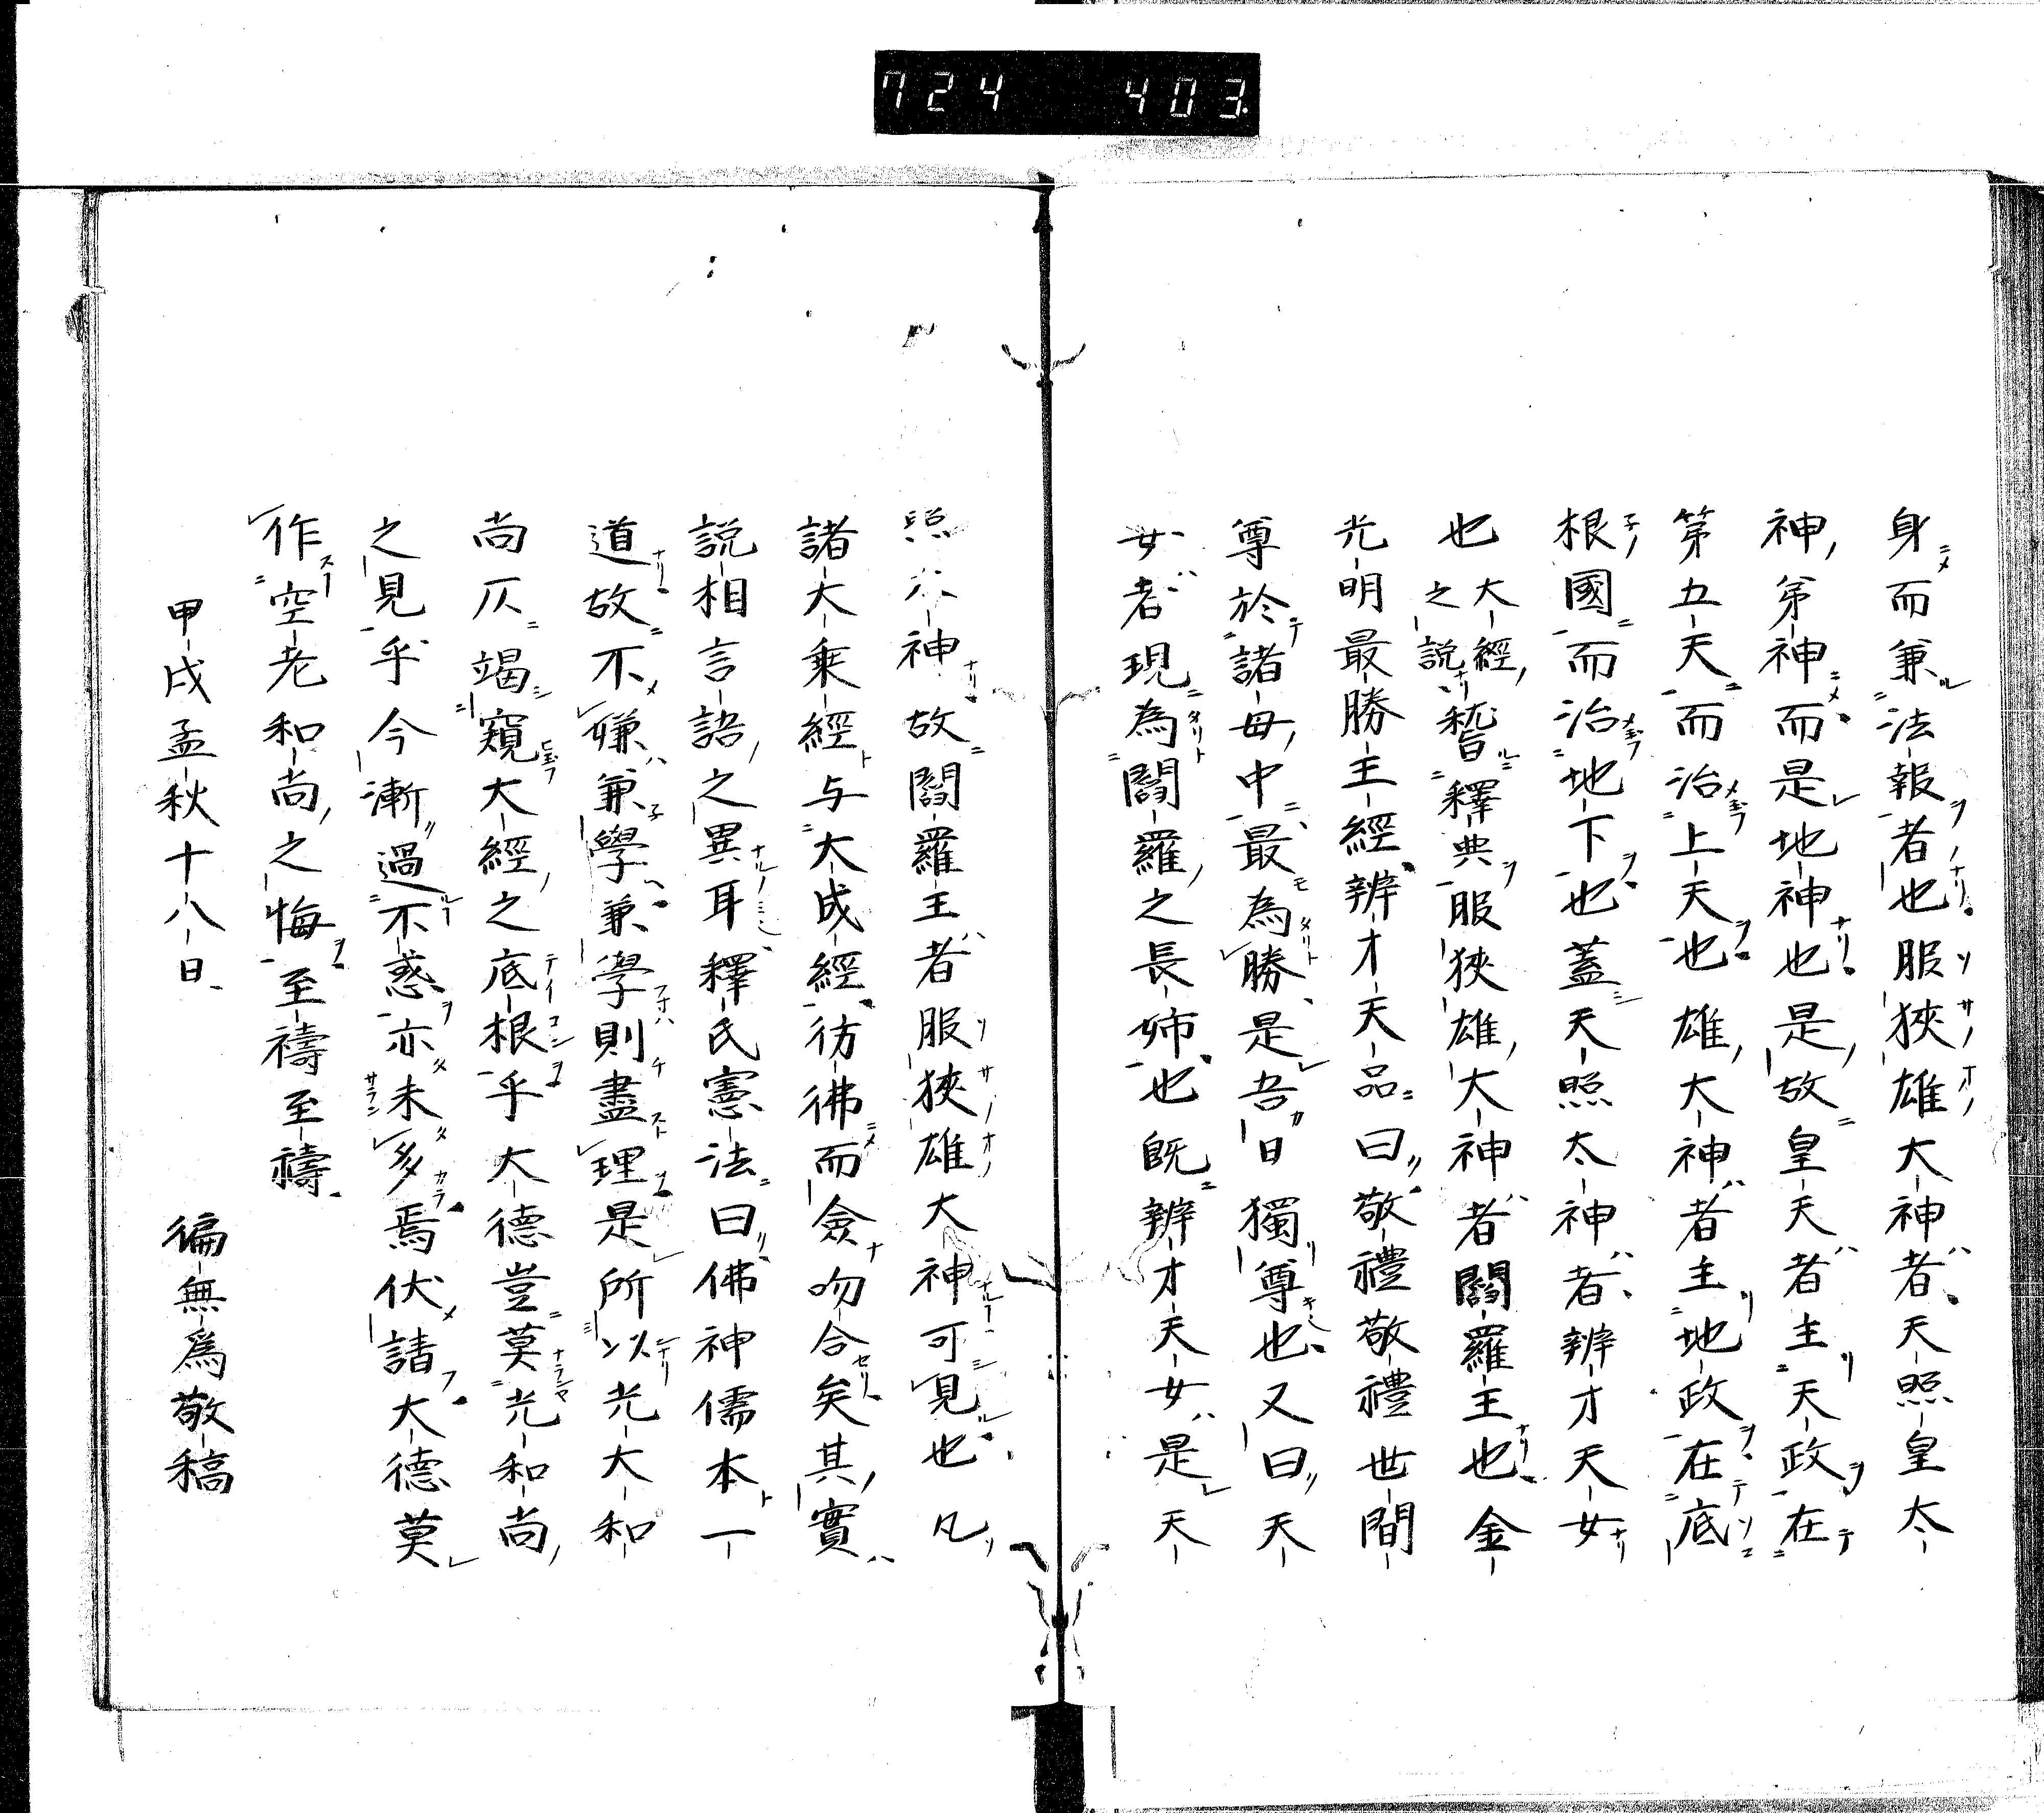 724 403
身而兼法報者也服狹雄大神者天照皇太
神弟神而是地神也是故皇天者主天政在
第五天而治上天也雄大神者主地政在底
根國而治地下也蓋天照太神者辨才天女
也大經之説嵆釋典服狹雄大神者閻羅王也金
光明最勝王經辨才天品曰敬禮敬禮世間
尊於諸母中最為勝是吾日獨尊也又曰天
女者現為閻羅之長姉也既辨才天女是天
照太神故閻羅王者服狹雄大神可見也凡
諸大乘經与大成經彷彿而僉吻合矣其實
説相言語之異耳釋氏憲法曰佛神儒本一
道故不嫌兼學兼學則盡理是所以光大和
尚仄竭窺大經之底根乎大德豈莫光和尚
之見乎今漸過不惑亦未多焉伏請大德莫
作空老和尚之悔至禱至禱
甲戌孟秋十八日 徧無爲敬稿